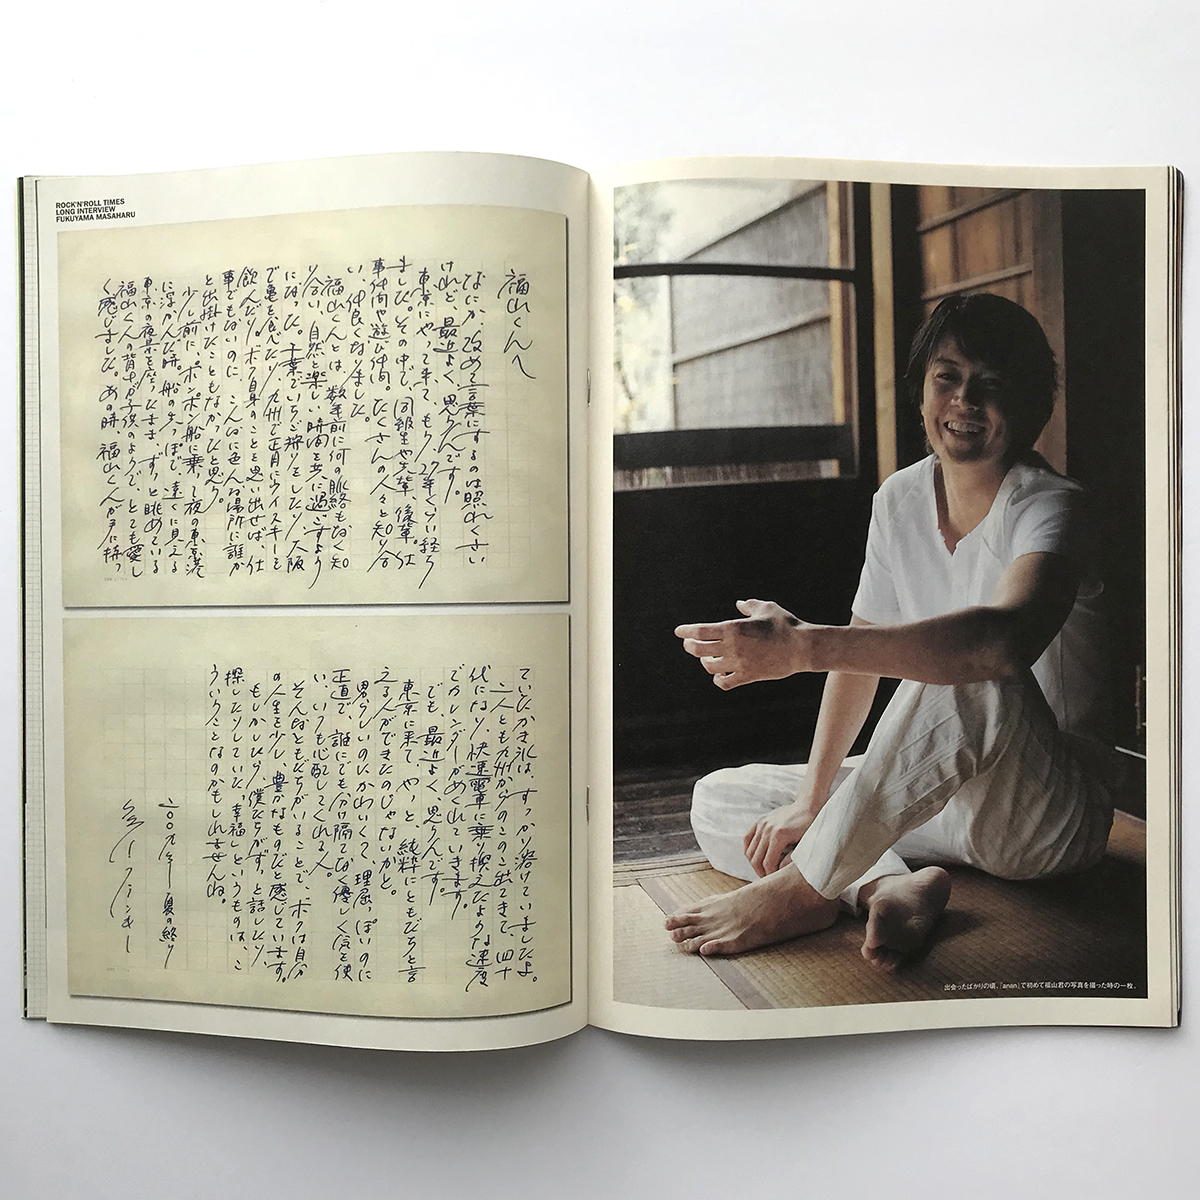 ROCK'N'ROLL TIMES
LONG INTERVIEW
FUKUYAMA MASAHARU
福山くんへ
なにか、改めて言葉にするのは照れくさい
けれど、最近よく、思うんです。
東京にやって来て、もう27年くらい経ち
ました。その中で、同級生や先輩、後輩。仕
事仲間や遊び仲間。たくさんの人々と知り合
い、仲良くなりました。
福山くんとは、数年前に何の脈絡もなく知
り合い、自然と楽しい時間を共に過ごすよう
になった。千葉でいちご狩りをしたり、大阪
で亀を食べたり、九州で正月にウイスキーを
飲んだり。ボク自身のことを思い出せば、仕
事でもないのに、こんなに色んな場所に誰か
と出掛けたこともなかったと思う。
少し前に、ポンポン船に乗って夜の東京湾
に浮かんだ時。船の先っぽで、遠くに見える
東京の夜景を座ったまま、ずっと眺めている
福山くんの背中が子供のようで、とても愛し
く感じました。あの時、福山くんが手に持っ
ていたかき氷は、すっかり溶けていましたよ。
二人とも九州からのこのこ出てきて、四十
代になり、快速電車に乗り換えたような速度
でカレンダーがめくれていきます。
でも、最近よく思うんです。
東京に来て、やっと、純粋にともだちと言
える人ができたのじゃないかと。
男らしいのにかわいくて、理屈っぽいのに
正直で、誰にでも分け隔てなく優しく気を使
い、いつも心配してくれる人。
そんなともだちがいることで、ボクは自分
の人生を少し、豊かなものだと感じています。
もしかしたら、僕たちがずっと話したり、
探したりしていた「幸福」というものは、こ
ういうことなのかもしれませんね。
二〇〇九年 夏の終り
リリー・フランキー
出会ったばかりの頃、「anan」で初めて福山君の写真を撮った時の一枚。